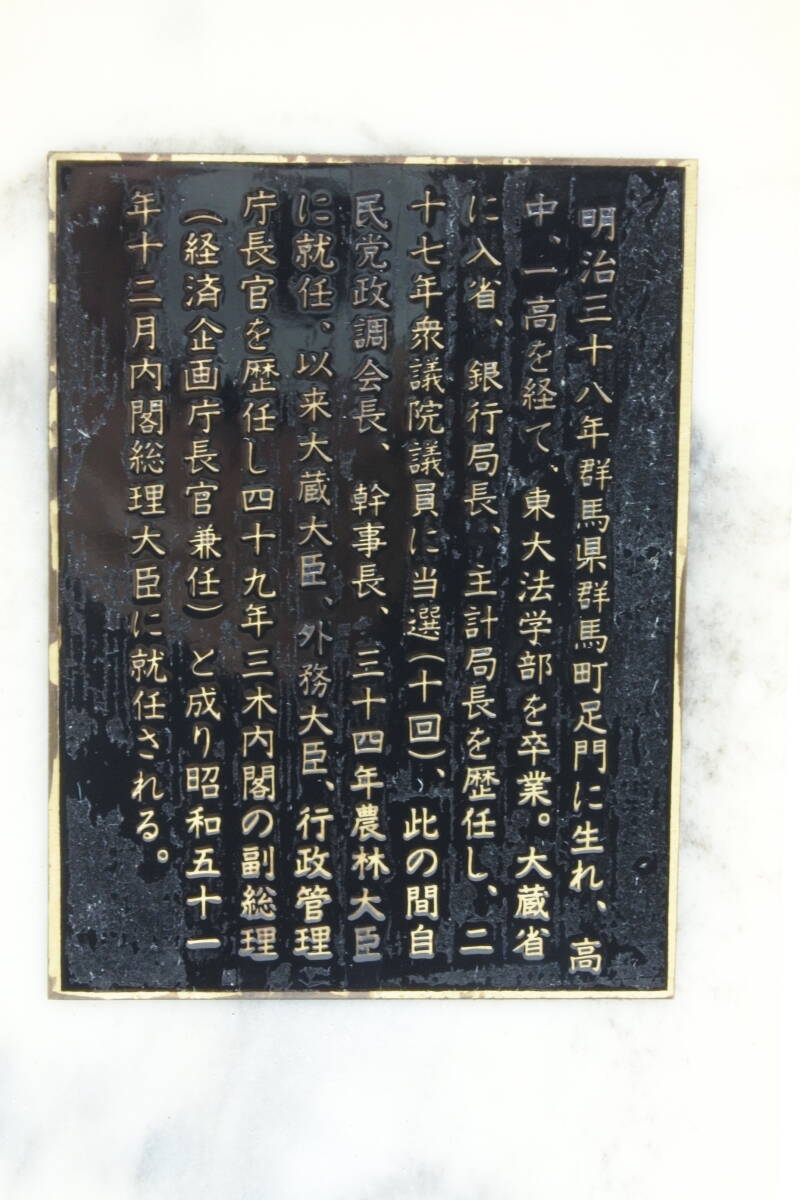 明治三十八年群馬県群馬町足門に生れ、高
中、一高を経て、東大法学部を卒業。大蔵省
に入省、銀行局長、主計局長を歴任し、二
十七年衆議院議員に当選(十回)、此の間自
民党政調会長、幹事長、三十四年農林大臣
に就任、以来大蔵大臣、外務大臣、行政管理
庁長官を歴任し四十九年三木内閣の副総理
(経済企画庁長官兼任)と成り昭和五十一
年十二月内閣総理大臣に就任される。